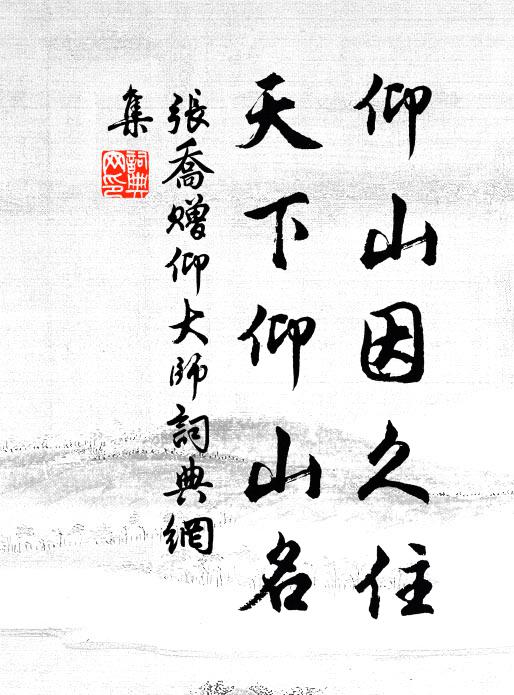 仰山因久住
天下仰山名
張喬贈仰大師詞典網
集
詞典
网印